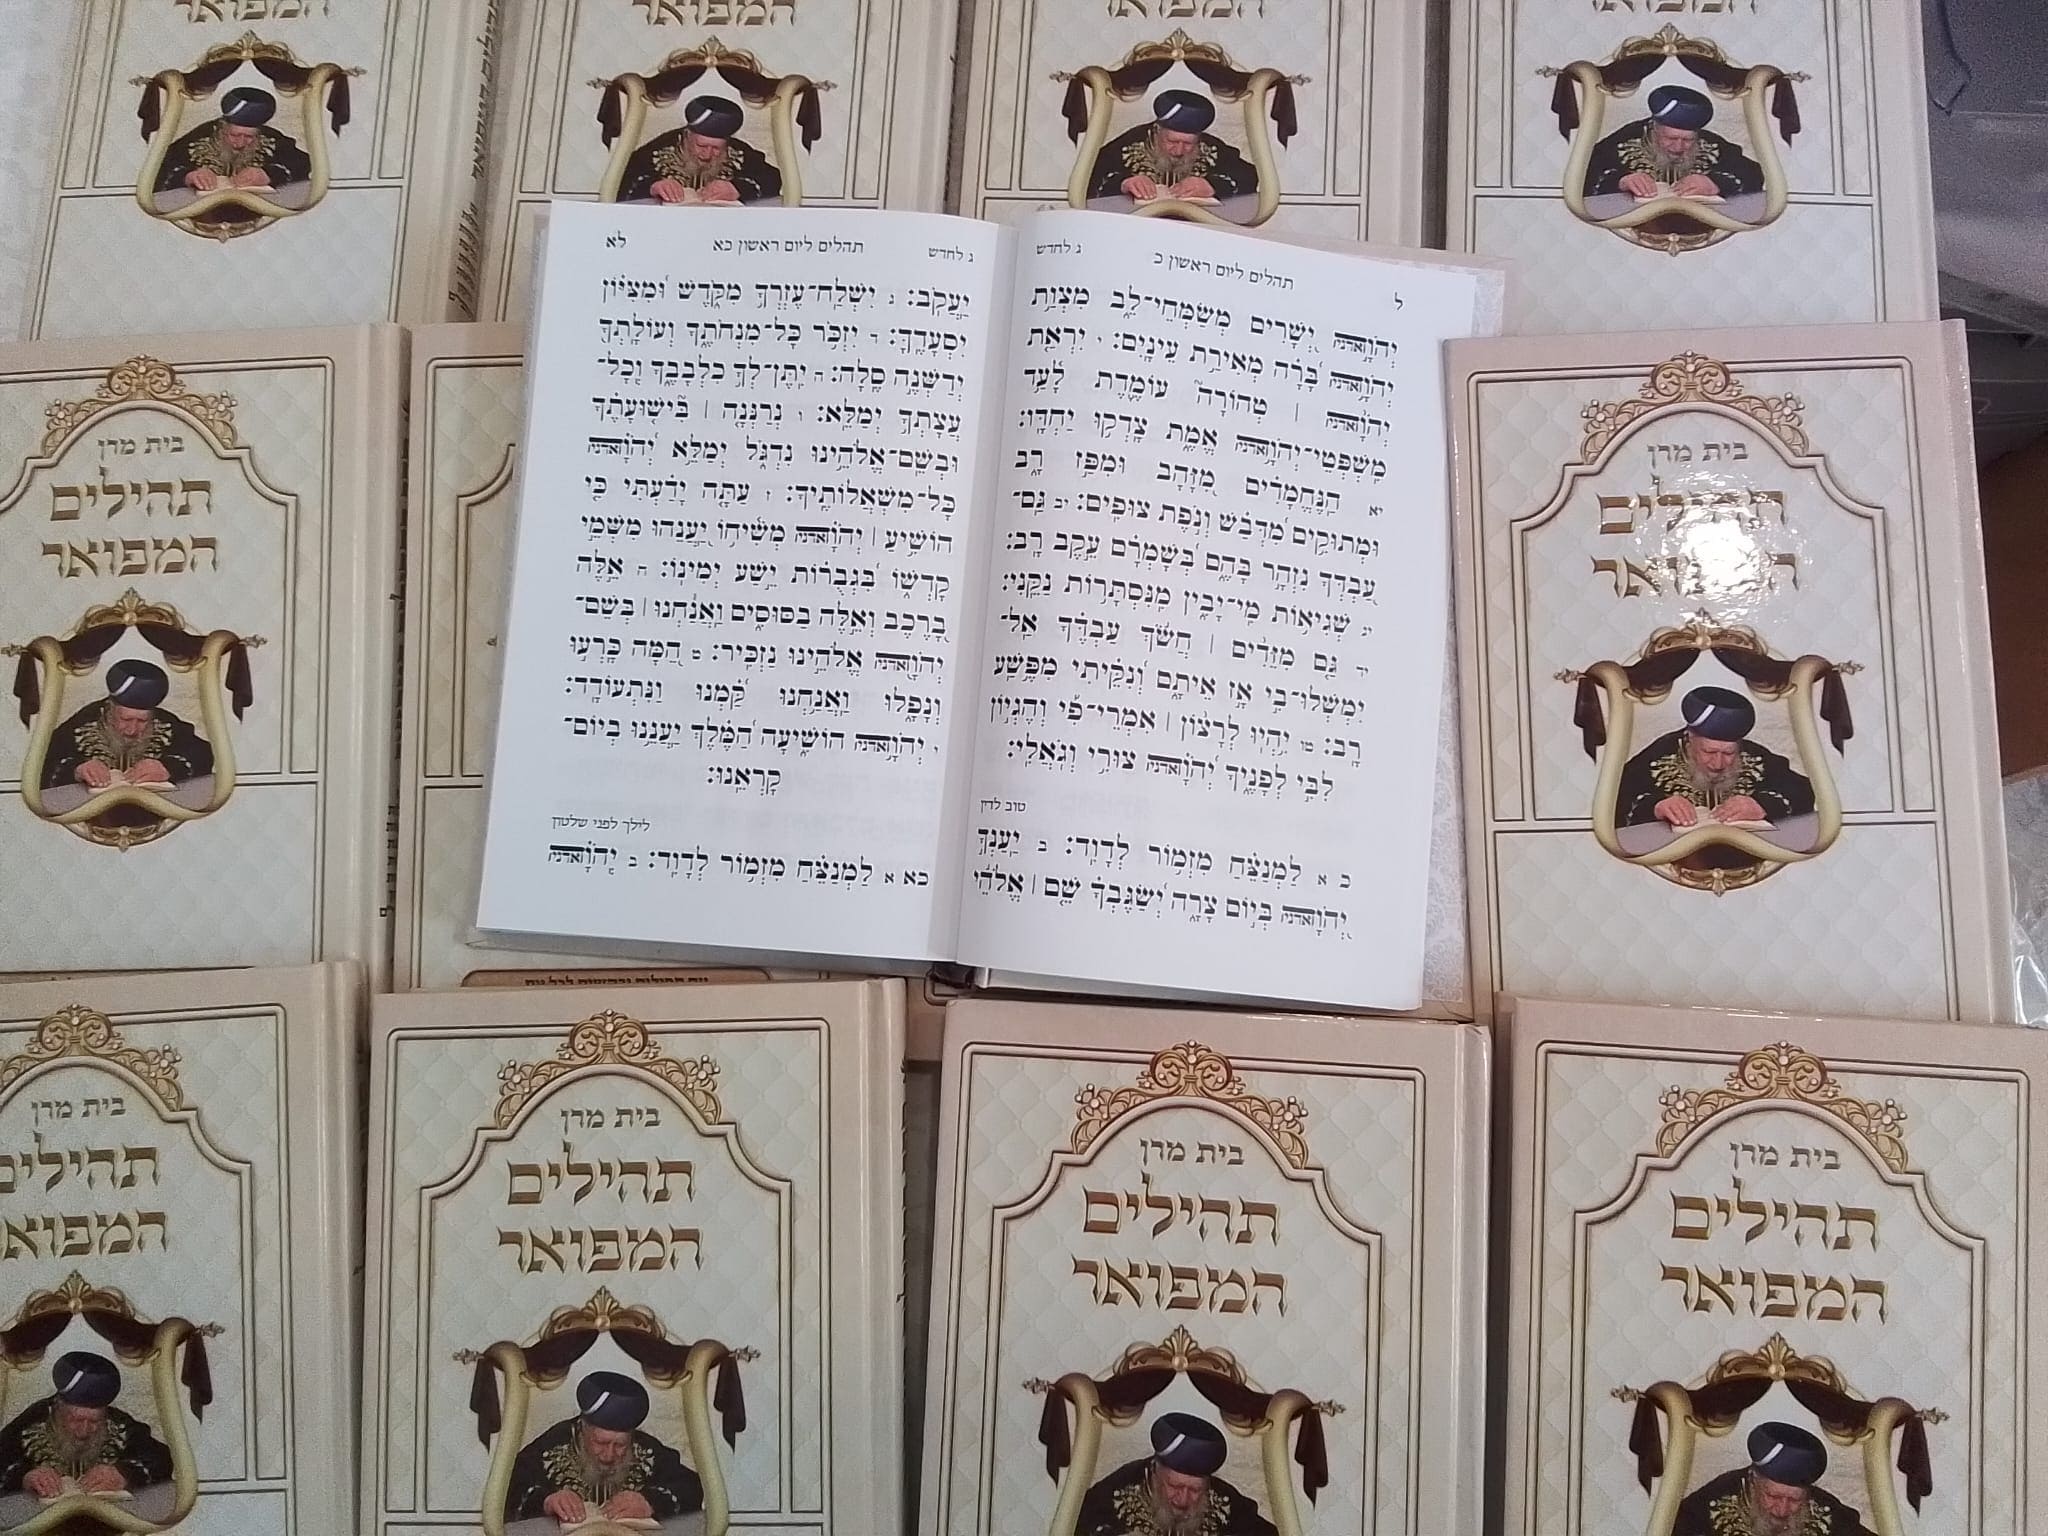 המפואר
המפואר
המפואר
המפואר
ל תהלים ליום ראשון כ ג לחדש
יְהֹוָה יְשָׁרִים מְשַׂמְּחֵי־לֵב מִצְוַת
יְהֹוָה בָּרָה מְאִירַת עֵינָיִם: י יִרְאַת
יְהֹוָה | טְהוֹרָה עוֹמֶדֶת לָעַד
מִשְׁפְּטֵי־יְהֹוָה אֱמֶת צָדְקוּ יַחְדָּו:
יא הַנֶּחֱמָדִים מִזָּהָב וּמִפַּז רָב
וּמְתוּקִים מִדְּבַשׁ וְנֹפֶת צוּפִים: יב גַּם־
עַבְדְּךָ נִזְהָר בָּהֶם בְּשָׁמְרָם עֵקֶב רָב:
יג שְׁגִיאוֹת מִי־יָבִין מִנִּסְתָּרוֹת נַקֵּנִי:
יד גַּם מִזֵּדִים | חֲשֹׂךְ עַבְדֶּךָ אַל־
יִמְשְׁלוּ־בִי אָז אֵיתָם וְנִקֵּיתִי מִפֶּשַׁע
רָב: טו יִהְיוּ לְרָצוֹן | אִמְרֵי־פִי וְהֶגְיוֹן
לִבִּי לְפָנֶיךָ יְהֹוָה צוּרִי וְגֹאֲלִי:
טוב לדין
כ א לַמְנַצֵּחַ מִזְמוֹר לְדָוִד: ב יַעַנְךָ
יְהֹוָה בְּיוֹם צָרָה יְשַׂגֶּבְךָ שֵׁם | אֱלֹהֵי
ג לחדש תהלים ליום ראשון כא לא
יַעֲקֹב: ג יִשְׁלַח־עֶזְרְךָ מִקֹּדֶשׁ וּמִצִּיּוֹן
יִסְעָדֶךָּ: ד יִזְכֹּר כָּל־מִנְחֹתֶךָ וְעוֹלָתְךָ
יְדַשְּׁנֶה סֶלָה: ה יִתֶּן־לְךָ כִלְבָבֶךָ וְכָל־
עֲצָתְךָ יְמַלֵּא: ו נְרַנְּנָה | בִּישׁוּעָתֶךָ
וּבְשֵׁם־אֱלֹהֵינוּ נִדְגֹּל יְמַלֵּא יְהֹוָה
כָּל־מִשְׁאֲלוֹתֶיךָ: ז עַתָּה יָדַעְתִּי כִּי
הוֹשִׁיעַ | יְהֹוָה מְשִׁיחוֹ יַעֲנֵהוּ מִשְּׁמֵי
קָדְשׁוֹ בִּגְבֻרוֹת יֵשַׁע יְמִינוֹ: ח אֵלֶּה
בָרֶכֶב וְאֵלֶּה בַסּוּסִים וַאֲנַחְנוּ | בְּשֵׁם־
יְהֹוָה אֱלֹהֵינוּ נַזְכִּיר: ט הֵמָּה כָּרְעוּ
וְנָפָלוּ וַאֲנַחְנוּ קַּמְנוּ וַנִּתְעוֹדָד:
י יְהֹוָה הוֹשִׁיעָה הַמֶּלֶךְ יַעֲנֵנוּ בְיוֹם־
קָרְאֵנוּ:
לילך לפני שלטון
כא א לַמְנַצֵּחַ מִזְמוֹר לְדָוִד: ב יְהֹוָה
בית מרן
תהילים
המפואר
בית מרן
תהילים
המפואר
בית מרן
תהילים
המפואר
בית מרן
תהילים
המפואר
בית מרן
תהילים
המפואר
בית מרן
תהילים
המפואר